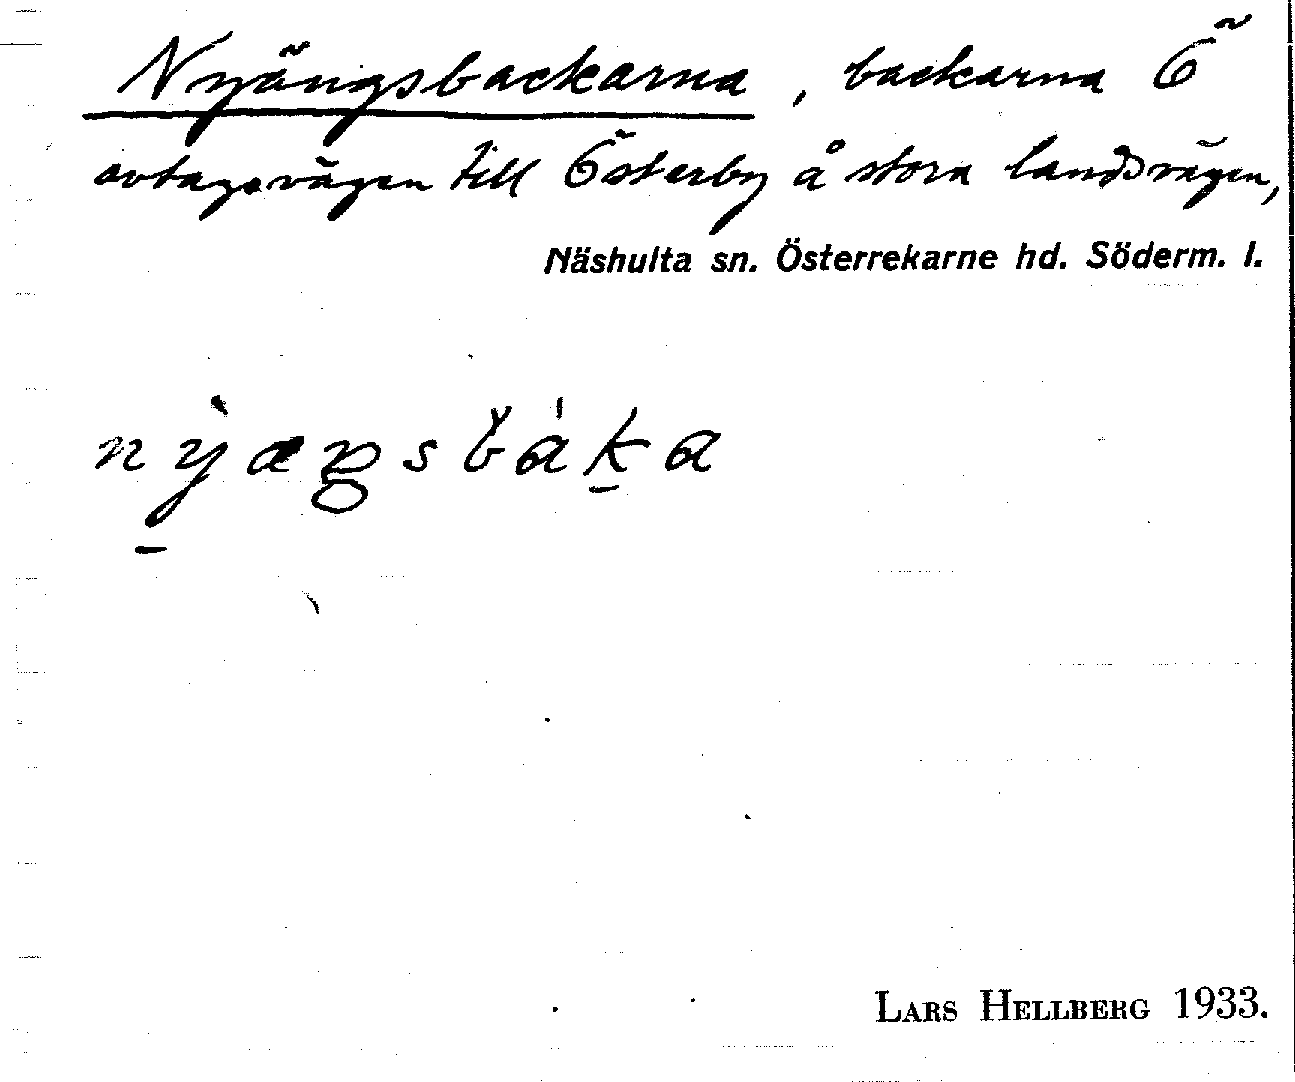 Nyängsbackarna, backarna Ö
avtagsvägen till Österby å stora landsvägen,
Näshulta sn. Österrekarne hd. Söderm. l.
nỳæŋsbáka
LARS HELLBERG 1933.